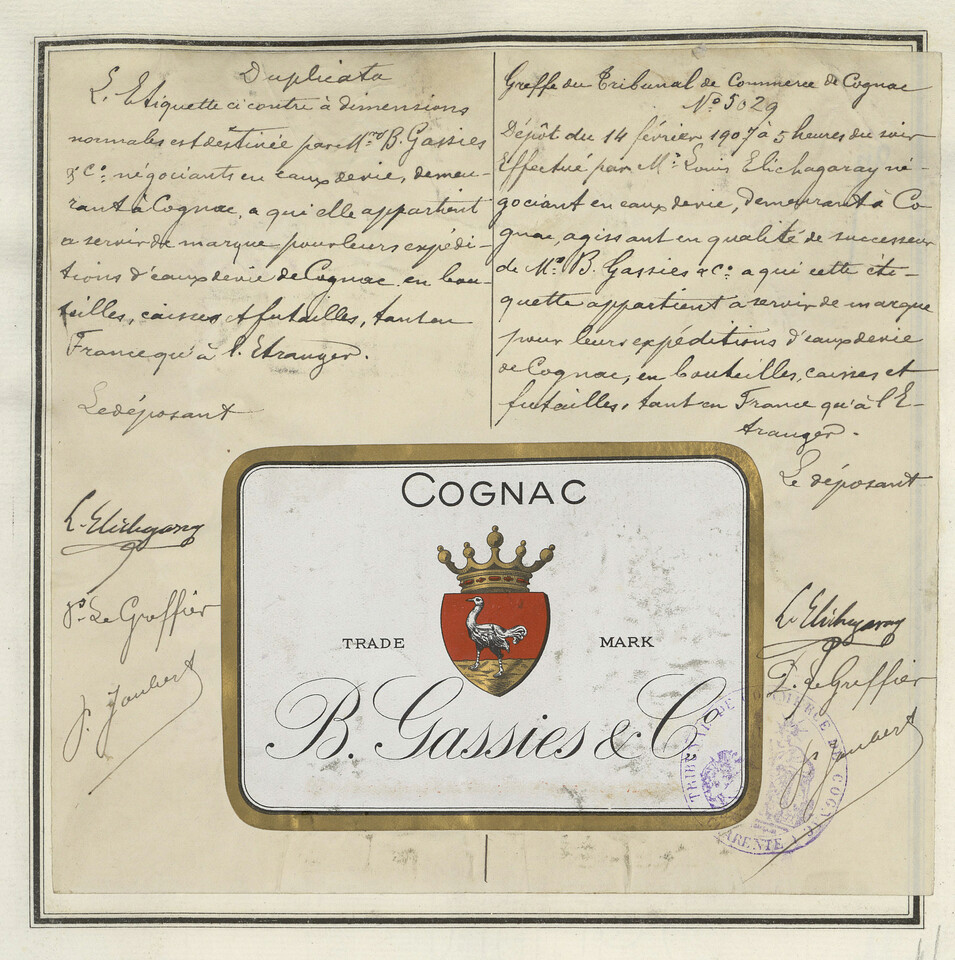 Duplicata
L'Etiquette ci contre à dimensions
normales est destinée par Mrs B. Gassies
& Co: négociants en eaux de vie, demeu-
rant à Cognac, a qui elle appartient
a servir de marque pour leurs expédi-
tions d'eaux de vie de Cognac en bou-
teilles, caisses et futailles, tant en
France qu'à l'Etranger.
Le déposant
L. Elichagaray
Pr. Le Greffier
J. Joubert
Greffe du Tribunal de Commerce de Cognac
No 5029
Dépôt du 14 février 1907 à 5 heures du soir
Effectué par Mr. Louis Elichagaray né-
gociant en eaux de vie, demeurant à Co
gnac, agissant en qualité de successeur
de Mrs B. Gassies & Co: a qui cette éti-
quette appartient a servir de marque
pour leurs expéditions d'eaux de vie
de Cognac, en bouteilles, caisses et
futailles, tant en France qu'à l'E-
tranger.
Le déposant
L. Elichagaray
P. Le Greffier
J. Joubert
COGNAC
TRADE MARK
B. Gassies & Co.
TRIBUNAL DE COMMERCE DE COGNAC
CHARENTE